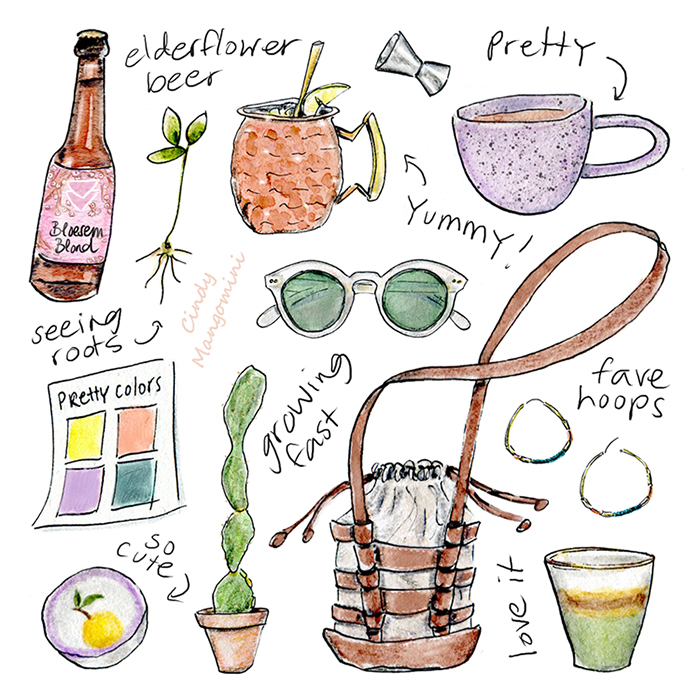 elderflower
beer
Pretty
Bloesem
Blond
Yummy!
Cindy
Mangomini
seeing
roots
Pretty Colors
growing
fast
fave
hoops
so
cute
love it